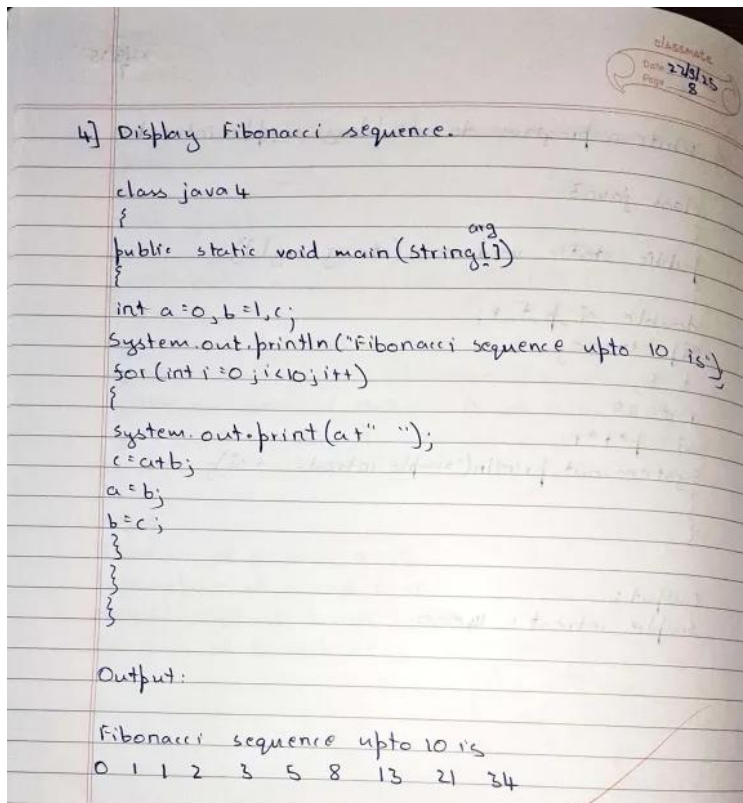 classmate
Date 22/9/25
Page 8
4] Display Fibonacci sequence.
class java4
{
public static void main(string[] arg)
{
int a=0, b=1, c;
System.out.println("Fibonacci sequence upto 10 is");
for(int i=0; i<10; i++)
{
system.out.print(a+" ");
c=a+b;
a=b;
b=c;
}
}
}
Output:
Fibonacci sequence upto 10 is
0 1 1 2 3 5 8 13 21 34